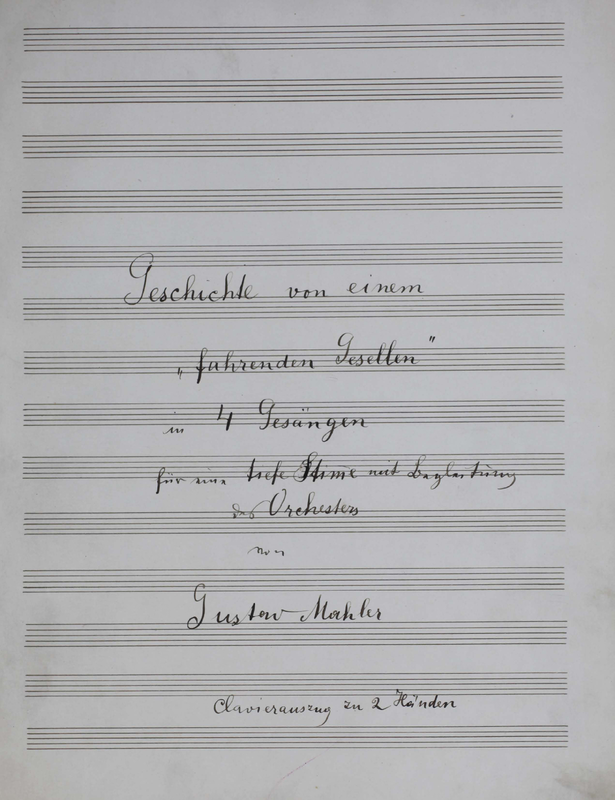 Geschichte von einem
„fahrenden Gesellen"
in 4 Gesängen
für eine tiefe Stim̄e mit Begleitung
des Orchesters
von
Gustav Mahler
Clavierauszug zu 2 Händen